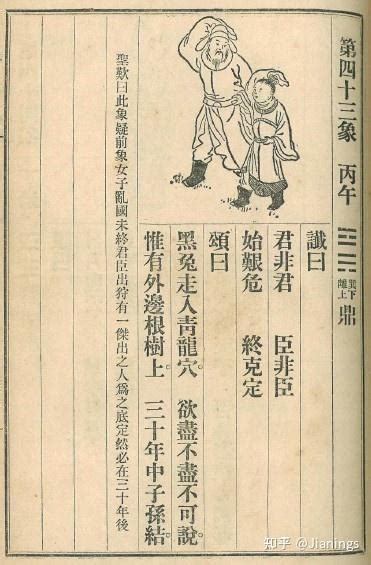 第四十三象 丙午 ䷱ 巽下離上 鼎
讖曰
君非君 臣非臣
始艱危 終克定
頌曰
黑兔走入青龍穴。 欲盡不盡不可說。
惟有外邊根樹上 三十年中子孫結。
聖歎曰此象疑前象女子亂國未終君臣出狩有一傑出之人爲之底定然必在三十年後
知乎 @Jianings